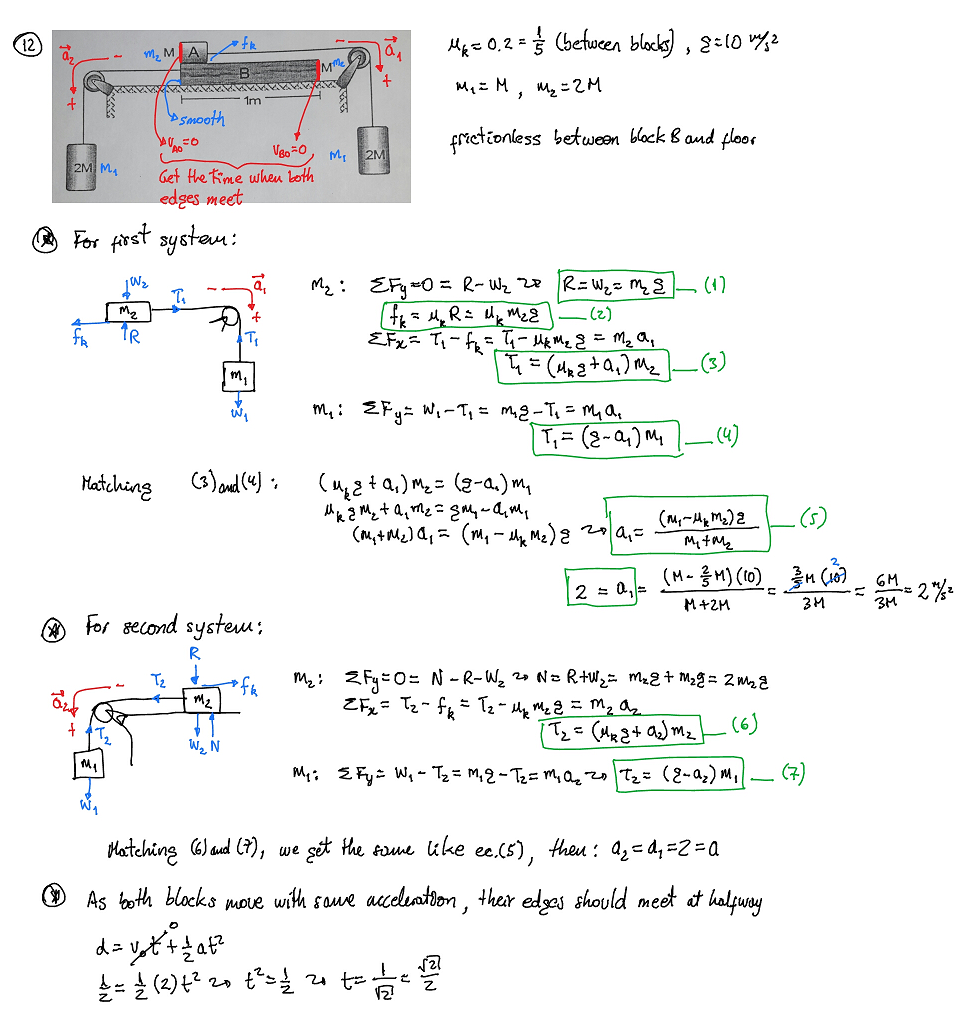 12
a⃗₂ − + m₂ M A fk − a⃗₁ +
B M m₂
1m
smooth
vA0=0 vB0=0
2M M₁ M₁ 2M
Get the time when both
edges meet
μk = 0.2 = 1/5 (between blocks), g=10 m/s²
m₁ = M , m₂ = 2M
frictionless between block B and floor
For first system:
W₂ T₁ − a⃗₁ +
m₂ fk R T₁
m₁
W₁
m₂: ΣFy=0 = R−W₂ R=W₂= m₂g (1)
fk = μk R = μk m₂g (2)
ΣFx = T₁ − fk = T₁ − μk m₂ g = m₂ a₁
T₁ = (μk g + a₁) m₂ (3)
m₁: ΣFy = W₁ − T₁ = m₁g − T₁ = m₁ a₁
T₁ = (g − a₁) m₁ (4)
Matching (3) and (4): (μk g + a₁) m₂ = (g−a₁) m₁
μk g m₂ + a₁ m₂ = g m₁ − a₁ m₁
(m₁+m₂) a₁ = (m₁ − μk m₂) g a₁ = (m₁−μk m₂) g / m₁+m₂ (5)
2 = a₁ = (M − 2/5 M)(10) / M+2M = 3/5 M (10) 2 / 3M = 6M / 3M = 2 m/s²
For second system:
R
a⃗₂ − + T₂ m₂ fk
T₂ W₂ N
m₁
W₁
m₂: ΣFy=0 = N−R−W₂ N=R+W₂ = m₂g + m₂g = 2m₂g
ΣFx = T₂ − fk = T₂ − μk m₂ g = m₂ a₂
T₂ = (μk g + a₂) m₂ (6)
m₁: ΣFy = W₁ − T₂ = m₁g − T₂ = m₁ a₂ T₂ = (g−a₂) m₁ (7)
Matching (6) and (7), we get the same like ec.(5), then: a₂=a₁=2=a
As both blocks move with same acceleration, their edges should meet at halfway
d = v₀t 0 + 1/2 at²
1/2 = 1/2 (2) t² t² = 1/2 t = 1/√2 = √2/2